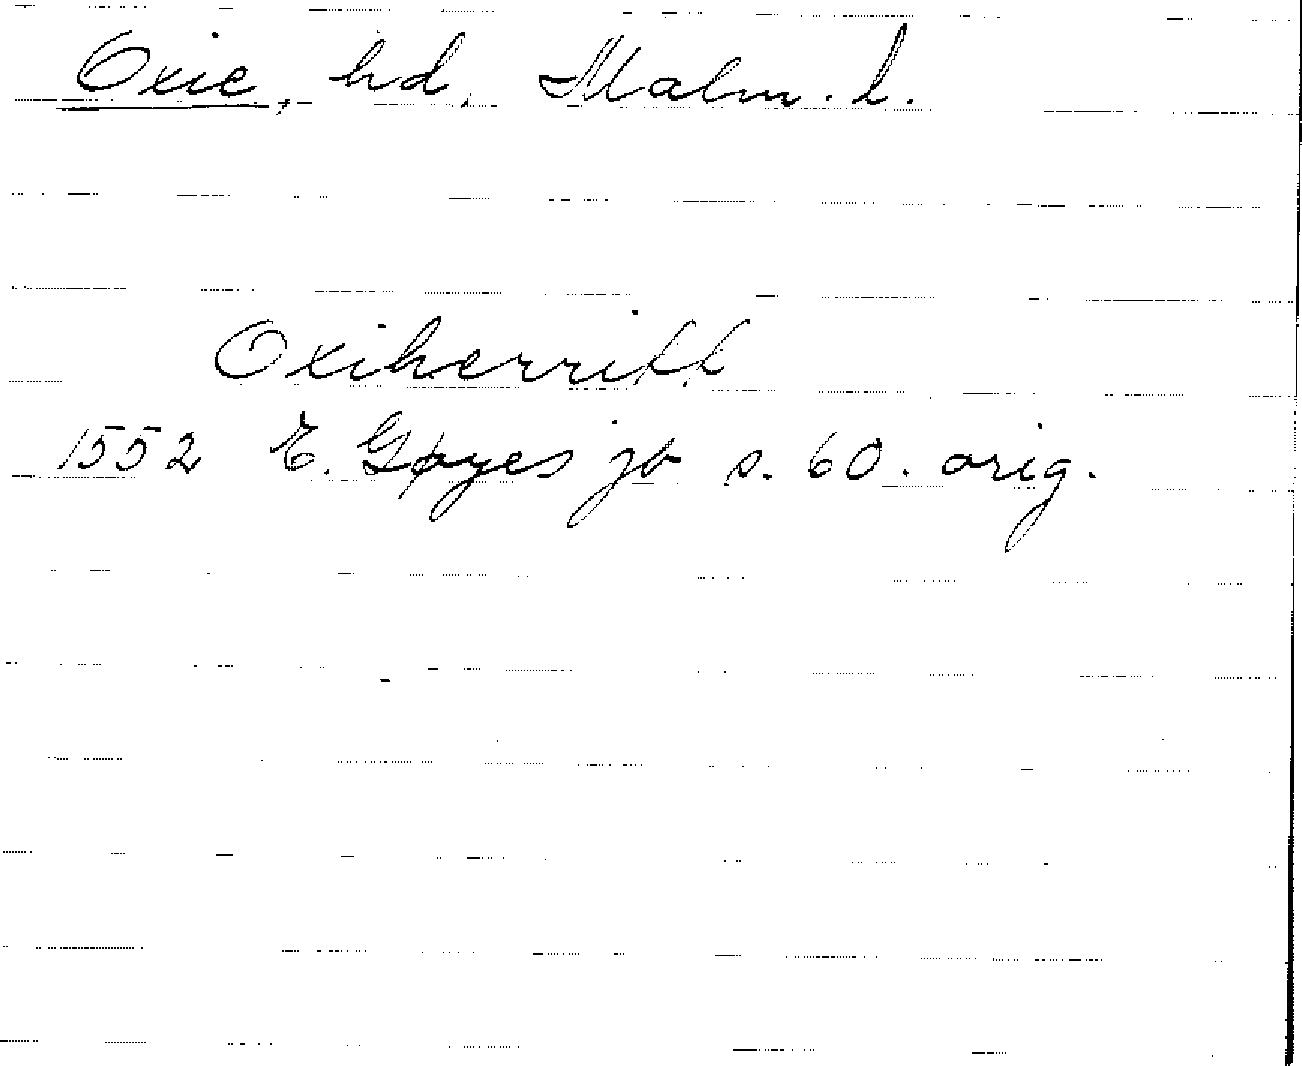 Oxie, hd, Malm. l.
Oxiherritt
1552 E. Gøyes jb s. 60. orig.